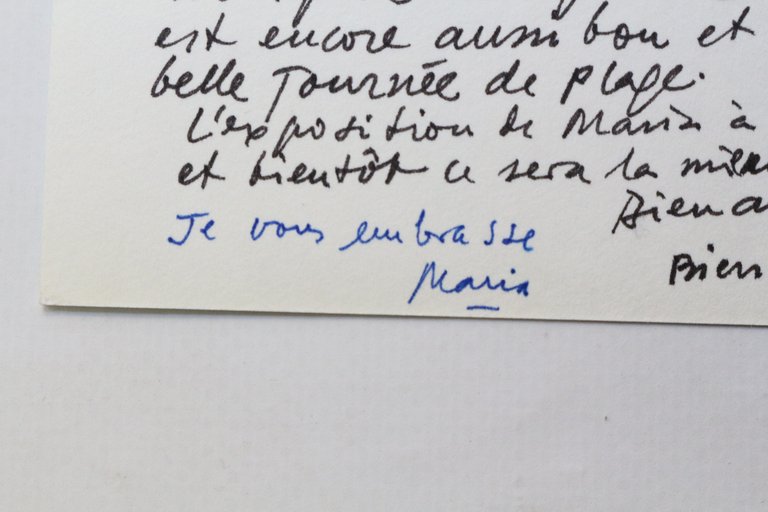 est encore aussi bon et
belle journée de plage.
L'exposition de Maria à
et bientôt ce sera la mien
Bien a
Je vous embrasse
Bien
Maria